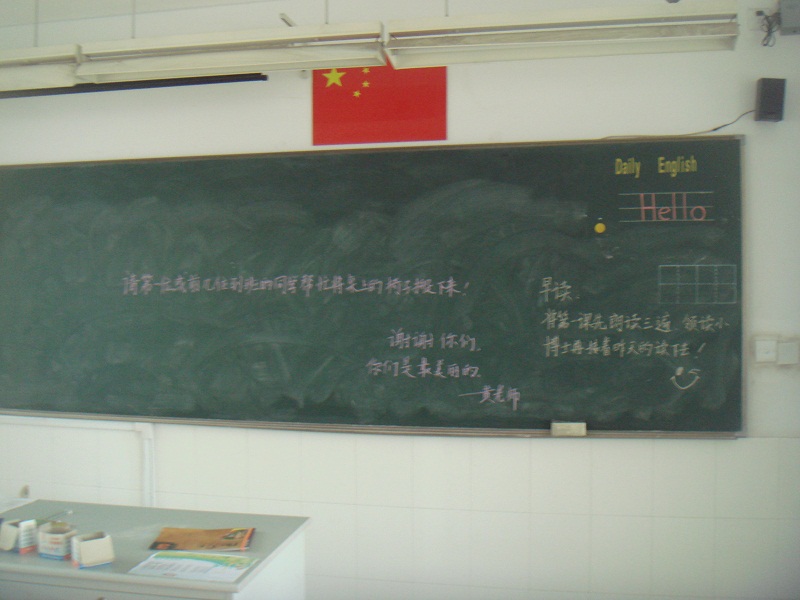 Daily English
Hello
请第一位或前几位到班的同学帮忙将桌上的椅子搬下来！
谢谢你们，
你们是最美丽的。
——黄老师
早读：
将第一课先朗读三遍，领读小
博士再接着昨天的读下去！